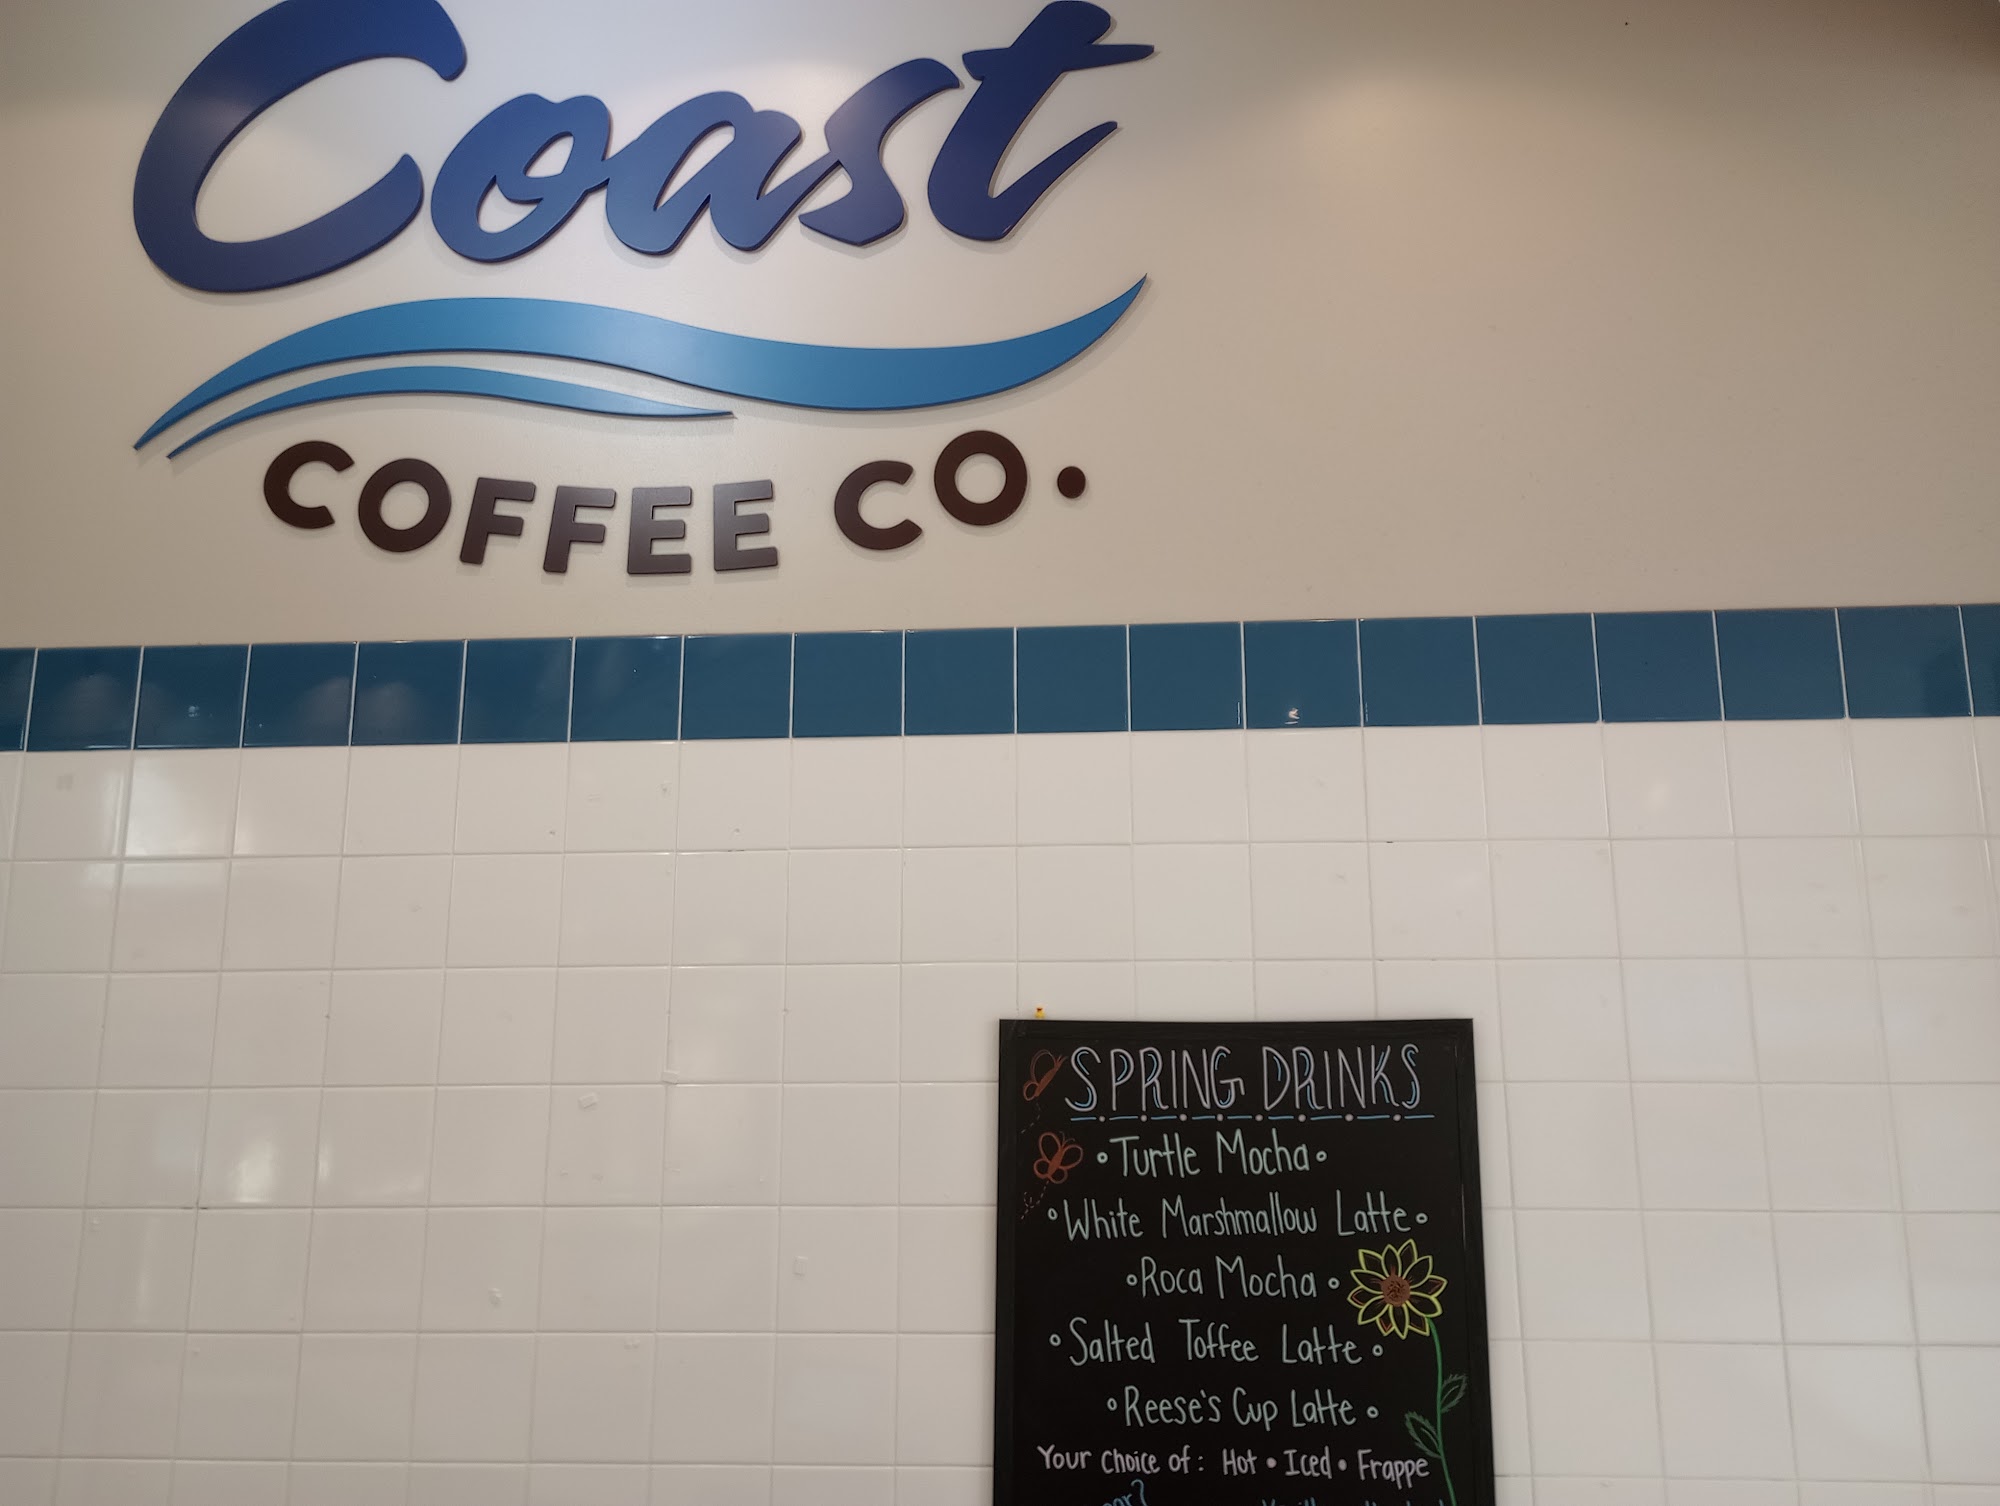 Coast
COFFEE CO.
SPRING DRINKS
Turtle Mocha
White Marshmallow Latte
Roca Mocha
Salted Toffee Latte
Reese's Cup Latte
Your Choice of: Hot • Iced • Frappe